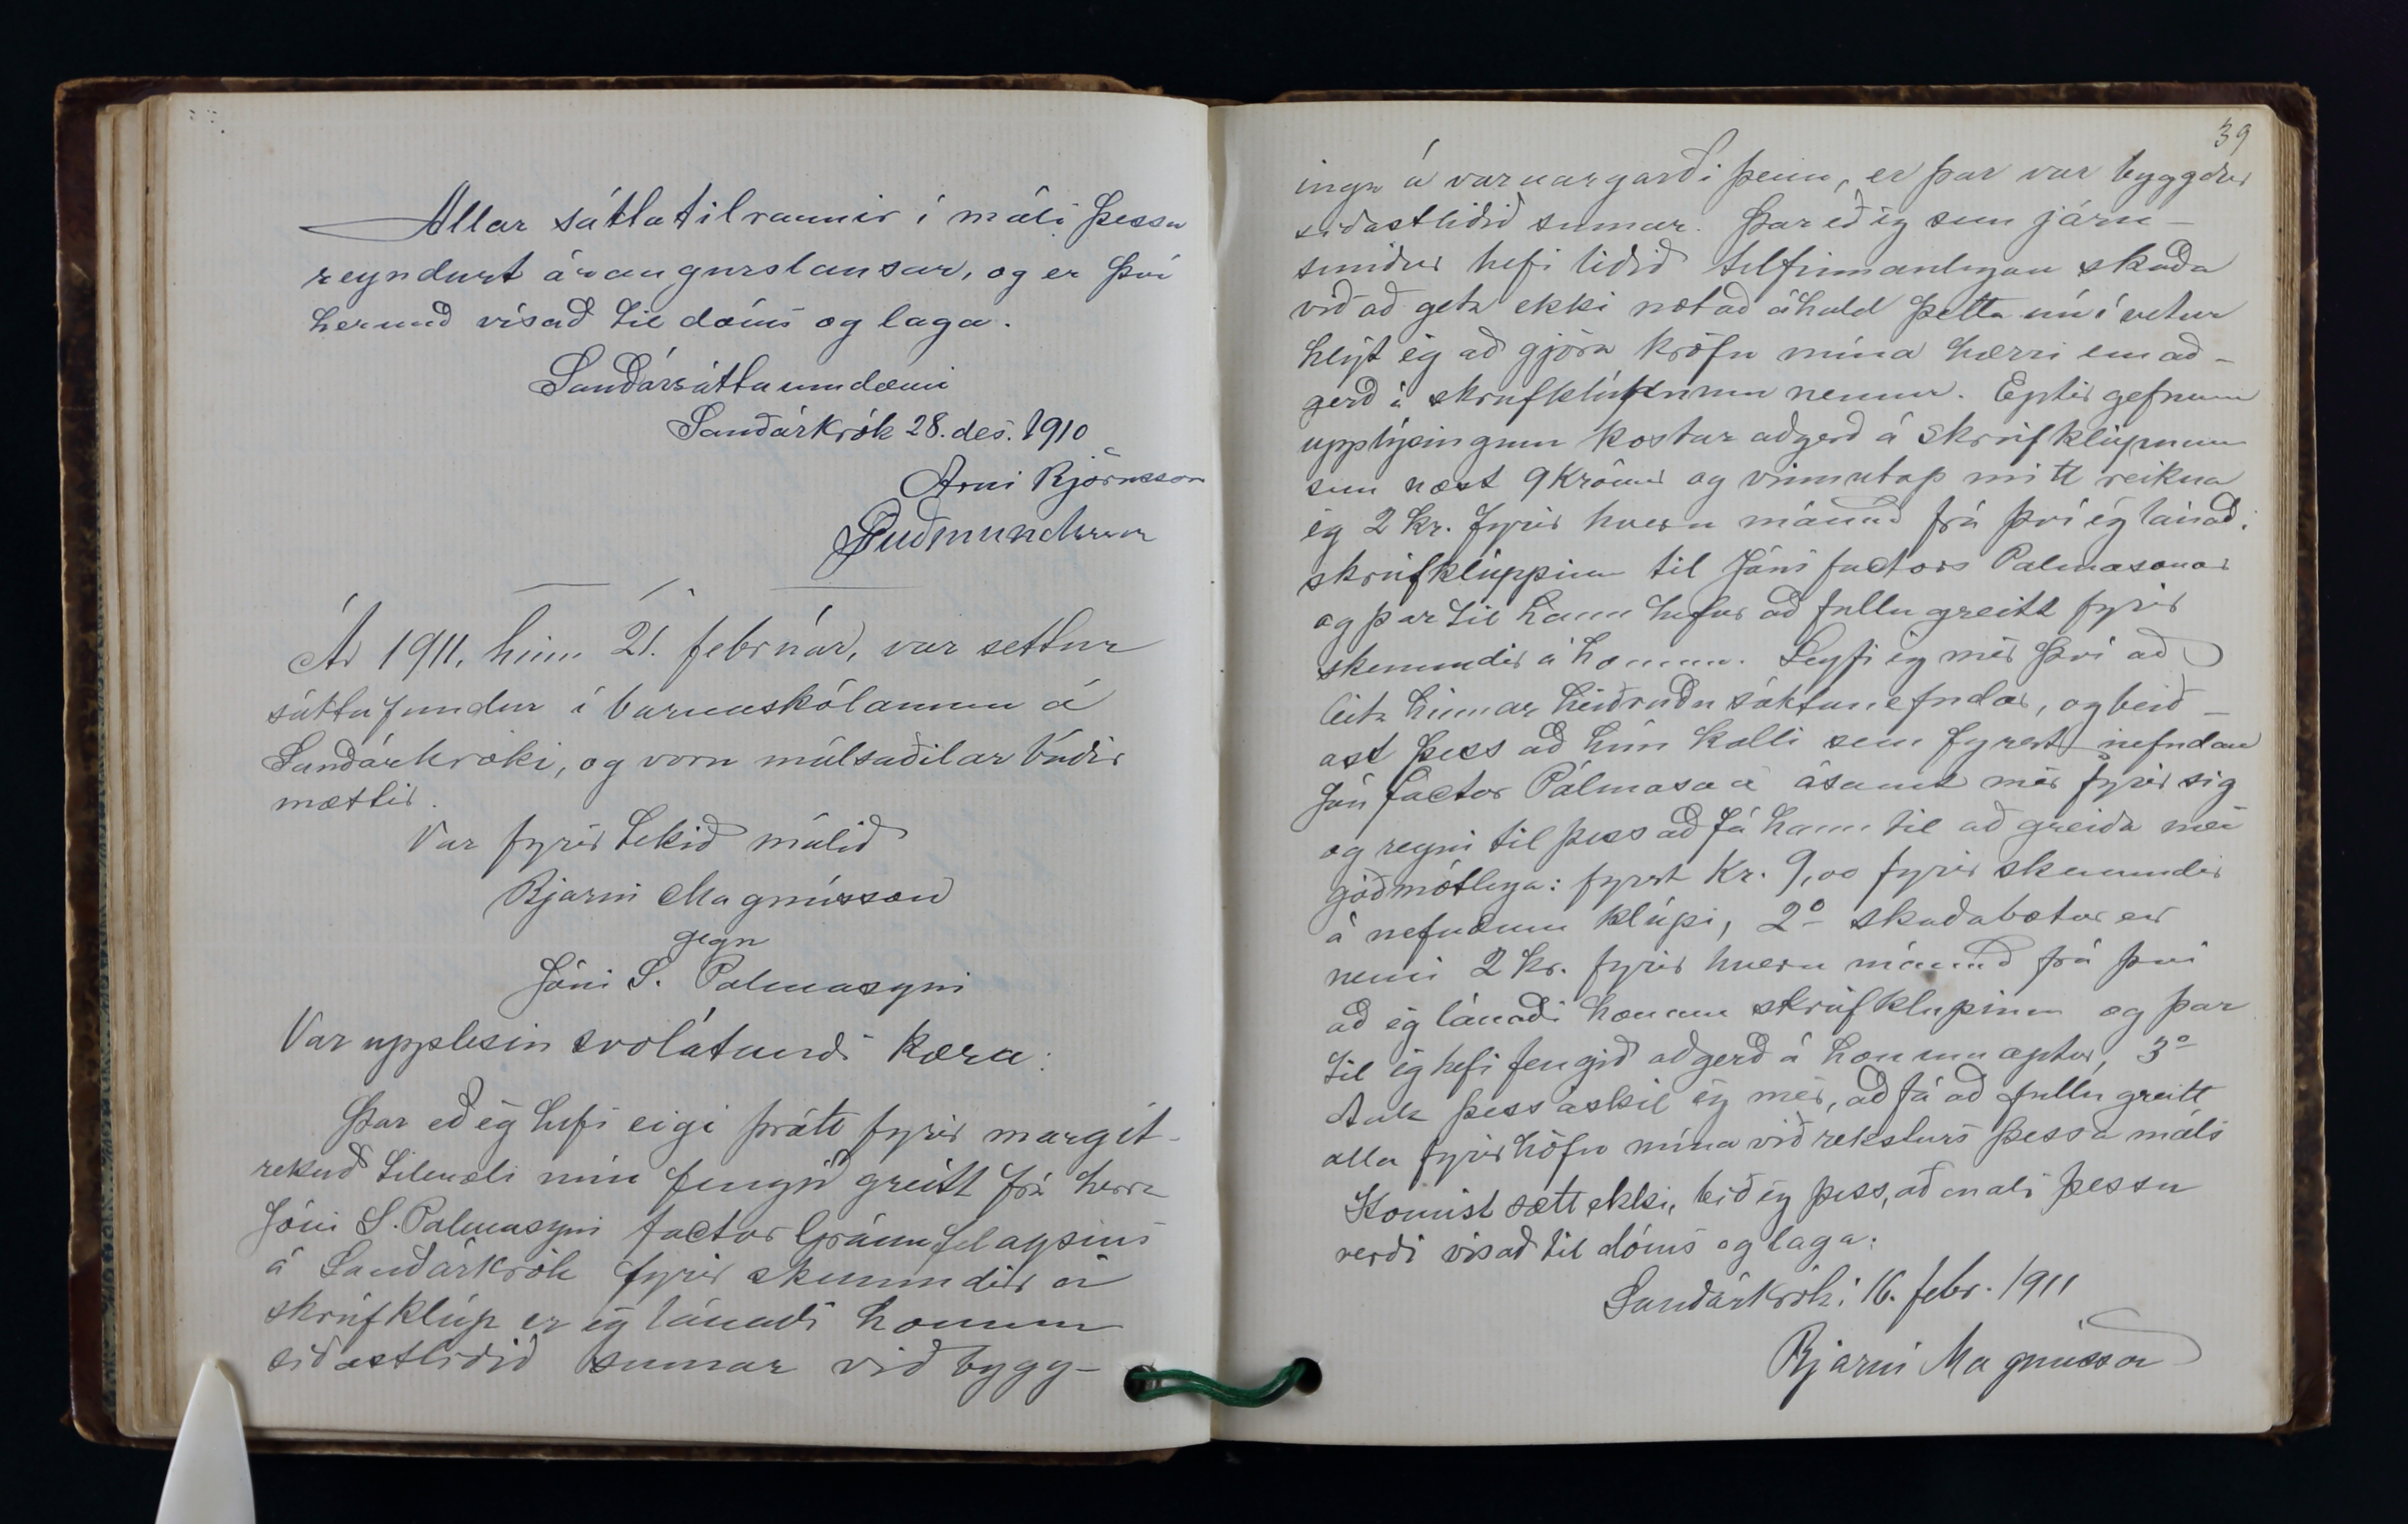 Allar sáttatilraunir í máli þessu
reyndust árangurslausar, og er því
hermeð vísað til dóms og laga.
Sauðársáttaumdæmi
Sauðárkrók 28. des. 1910
Árni Björnsson
Ár 1911, hinn 21. febrúar, var settur
sáttafundur í barnaskólanum á
Sauðárkróki, og voru málsaðilar báðir
mættir.
Var fyrir tekið málið
Bjarni Magnússon
gegn
Jóni S. Palmasyni
Var upplesin svolátandi kæra:
Þar eð ég hefi eigi þrátt fyrir margít-
rekuð tilmæli mín fengið greitt frá herra
Jóni S. Palmasyni factor Gránufélagsins
á Sauðárkrók fyrir skemmdir á
skrúfklúp er ég lánaði honum
síðastliðið sumar við bygg-
39
ingu á varnargarði þeim, er þar var byggður
síðastliðið sumar. Þar eð ég sem járn-
smiður hefi liðið tilfinnanlegan skaða
við að geta ekki notað áhald þetta nú í vetur
hlýt ég að gjöra kröfu mína hærri en að-
gerð á skrufklúpnum nemur. Eptir gefnum
upplýsingum kostar aðgerð á skrúfklúpnum
sem næst 9 krónur og vinnutap mitt reikna
ég 2 kr. fyrir hvern mánuð frá því ég lánaði
skrúfklúppinn til Jóns factors Palmasonar
og þar til hann hefur að fullu greitt fyrir
skemmdir á honum. Leyfi ég mér því að
leita hinnar heiðruðu sáttanefndar, og beið-
ast þess að hún kalli sem fyrst nefndan
Jón factor Pálmason ásamt mér fyrir sig
og reyni til þess að fá hann til að greiða mér
góðmótlega: fyrst Kr. 9,00 fyrir skemmdir
á nefndum klúpi, 2º skaðabætur er
nemi 2 kr. fyrir hvern mánuð frá því
að ég lánaði honum skrúfklupinn og þar
til ég hefi fengið aðgerð á honum aptur, 3º
Auk þess áskil ég mér, að fá að fullu greitt
alla fyrirhöfn mína við reksturs þessa máls
Komist sætt ekki, bið ég þess, að máli þessu
verði vísað til dóms og laga.
Sauðárkróki 16. febr. 1911
Bjarni Magnússon